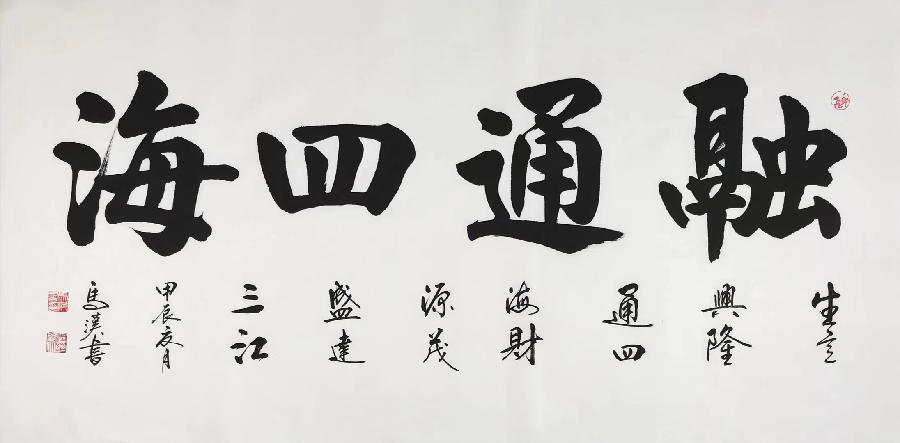 融通四海
生意
興隆
通四
海財
源茂
盛達
三江
甲辰夏月
馬漢書